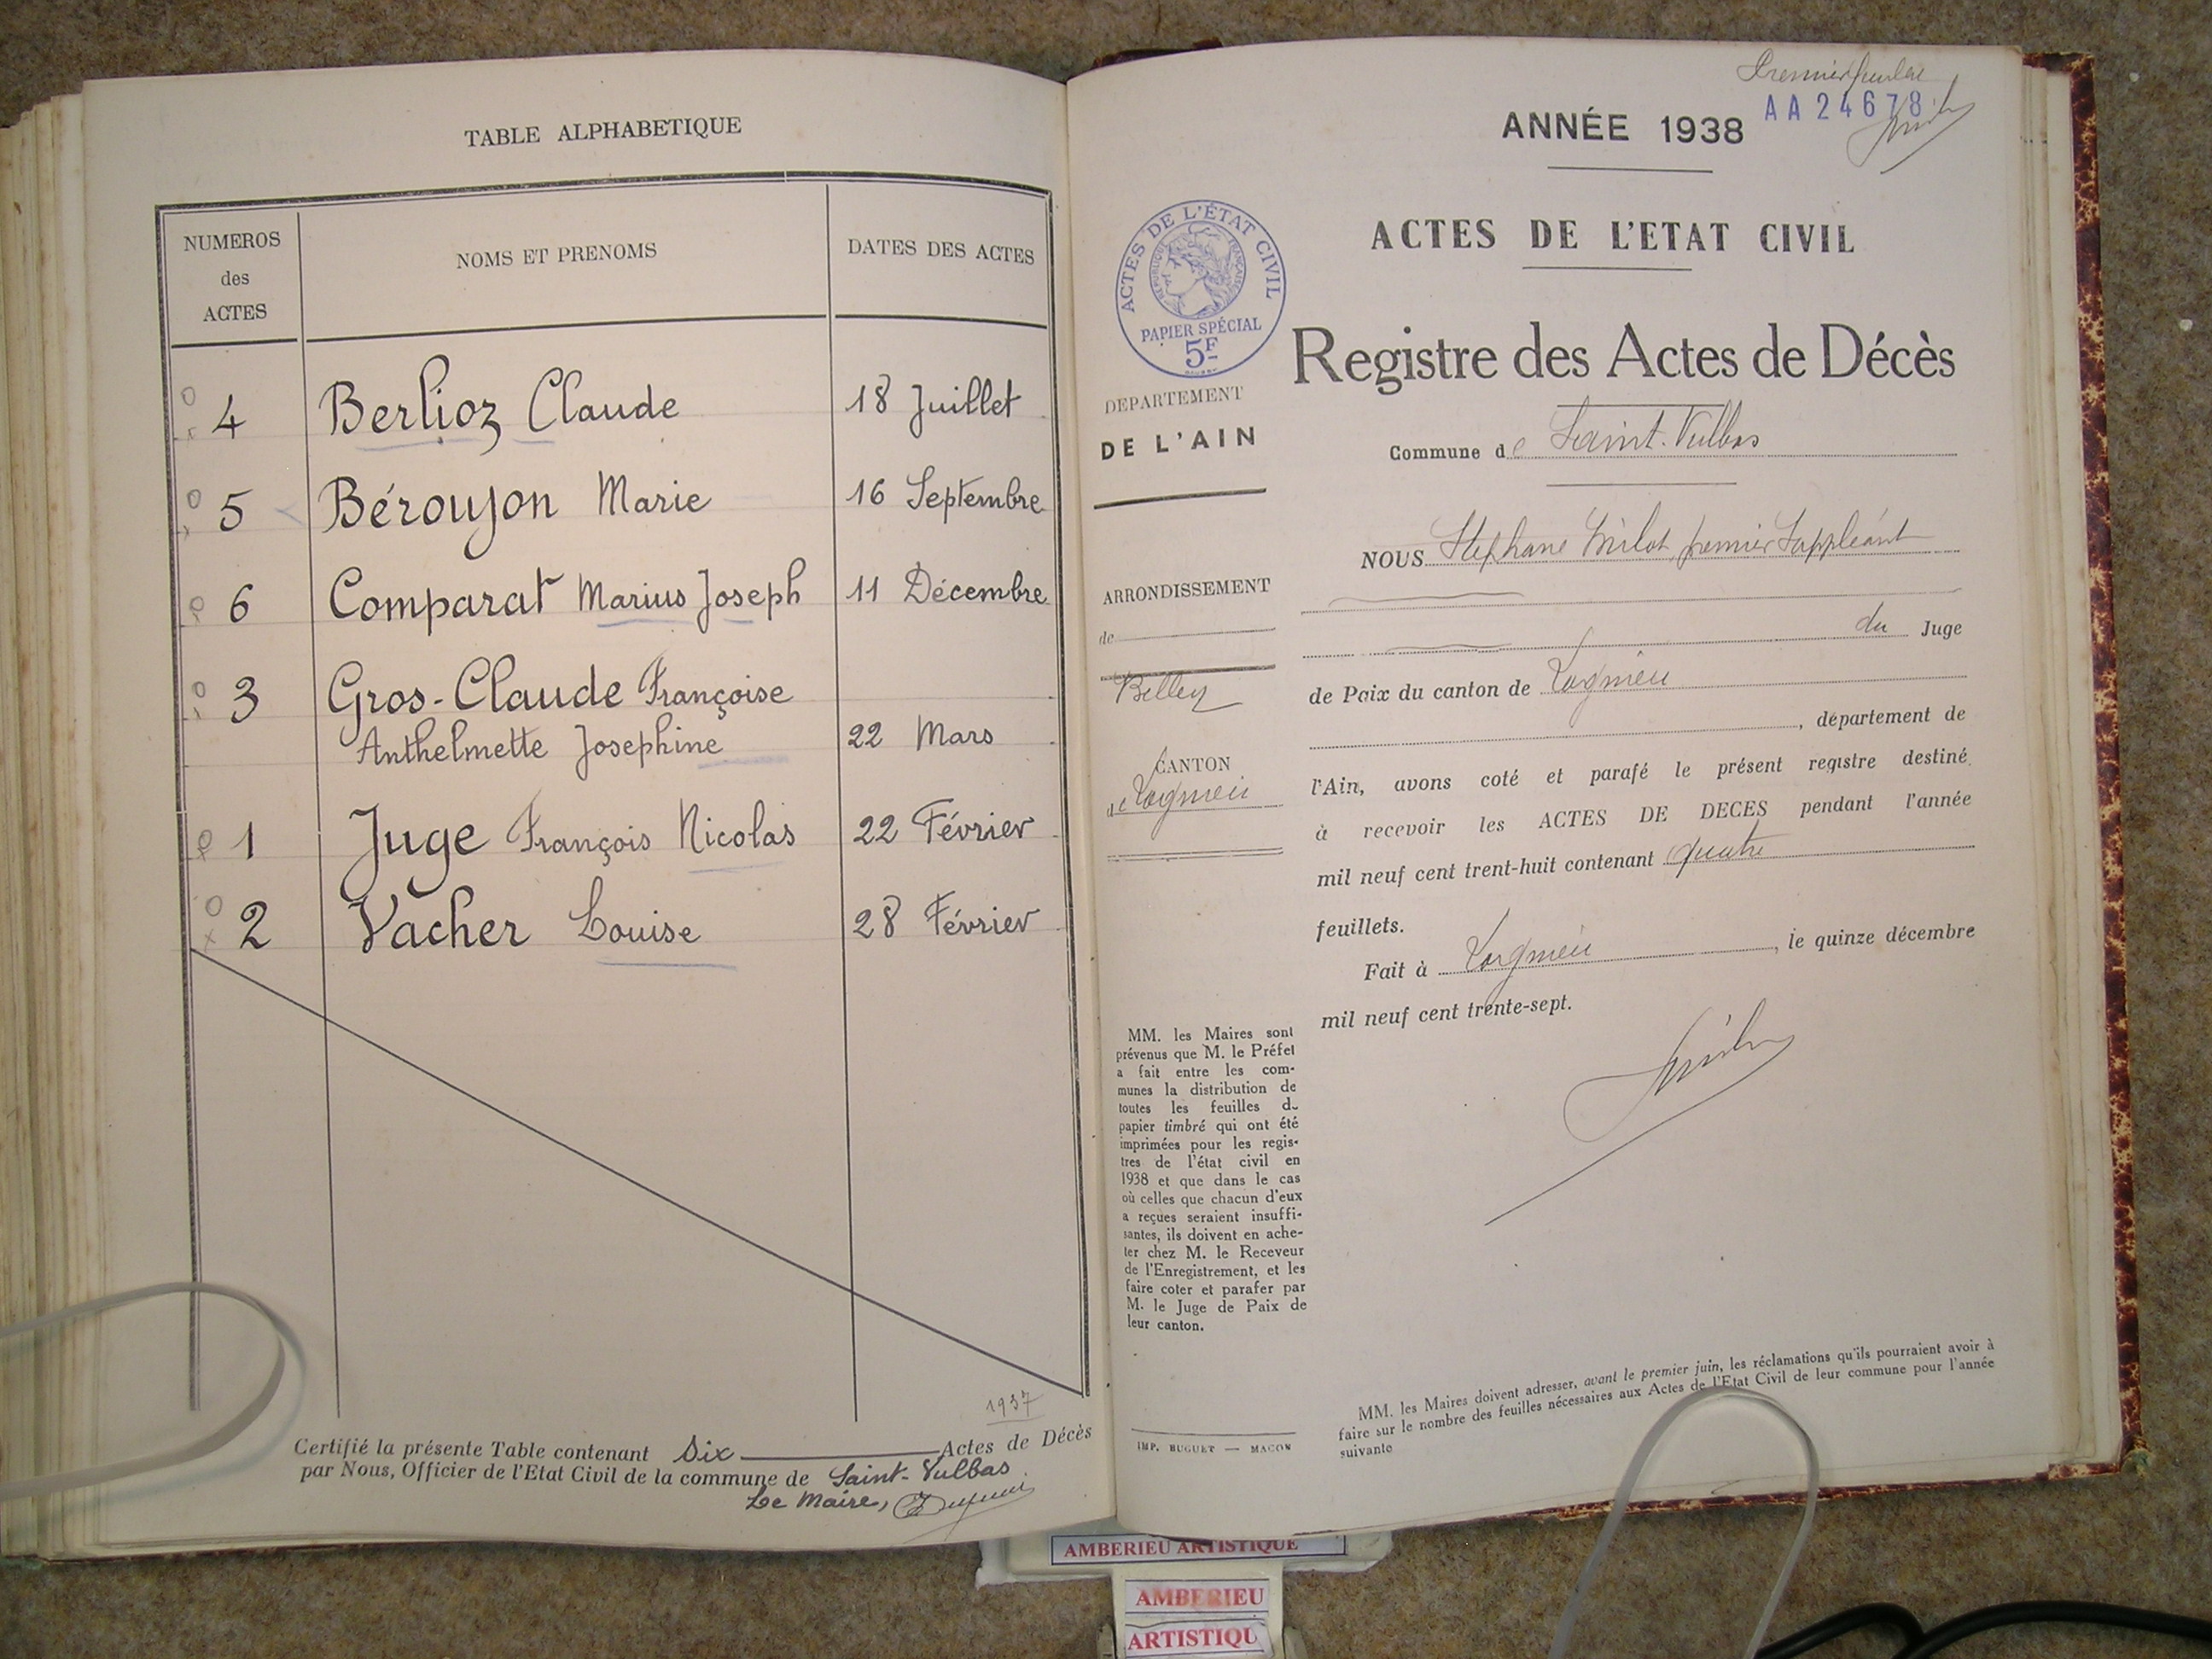 TABLE ALPHABETIQUE
NUMEROS des ACTES
NOMS ET PRENOMS
DATES DES ACTES
4 Berlioz Claude 18 Juillet
5 Béroujon Marie 16 Septembre
6 Comparat Marius Joseph 11 Décembre
3 Gros-Claude Françoise
Anthelmette Josephine 22 Mars
1 Juge François Nicolas 22 Février
2 Vacher Louise 28 Février
1937
Certifié la présente Table contenant Six Actes de Décès
par Nous, Officier de l'Etat Civil de la commune de Saint-Vulbas
Le Maire,
Premier
AA 24678
ANNÉE 1938
ACTES DE L'ETAT CIVIL
ACTES DE L'ÉTAT CIVIL
REPUBLIQUE FRANÇAISE
PAPIER SPÉCIAL
5F
Registre des Actes de Décès
DEPARTEMENT
DE L'AIN
Commune de Saint-Vulbas
NOUS Stephane premier Suppléant
ARRONDISSEMENT
de
Belley
du Juge
de Paix du canton de Lagnieu
, département de
CANTON
de Lagnieu
l'Ain, avons coté et parafé le présent registre destiné
à recevoir les ACTES DE DECES pendant l'année
mil neuf cent trent-huit contenant quatre
feuillets.
Fait à Lagnieu, le quinze décembre
mil neuf cent trente-sept.
MM. les Maires sont
prévenus que M. le Préfet
a fait entre les com-
munes la distribution de
toutes les feuilles de
papier timbré qui ont été
imprimées pour les regis-
tres de l'état civil en
1938 et que dans le cas
où celles que chacun d'eux
a reçues seraient insuffi-
santes, ils doivent en ache-
ter chez M. le Receveur
de l'Enregistrement, et les
faire coter et parafer par
M. le Juge de Paix de
leur canton.
IMP. BUGUET — MACON
MM. les Maires doivent adresser, avant le premier juin, les réclamations qu'ils pourraient avoir à
faire sur le nombre des feuilles nécessaires aux Actes de l'Etat Civil de leur commune pour l'année
suivante
AMBERIEU ARTISTIQUE
AMBERIEU
ARTISTIQU